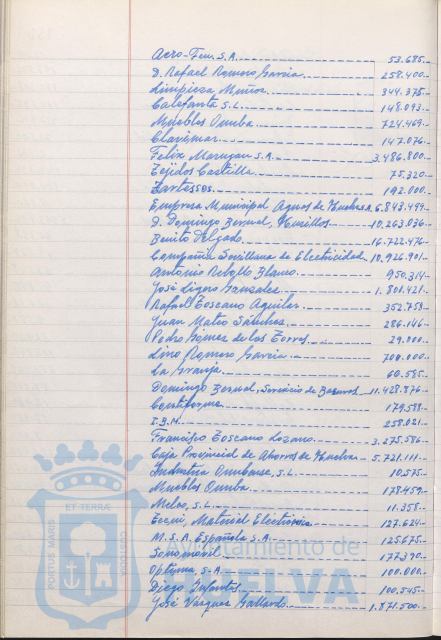 Acro-Fem. S.A. 53.685.-
D. Rafael Romero Garcia 258.400.-
Limpieza Muñoz 344.375-
Calefanta S.L. 148.093.-
Muebles Onuba 724.469.-
Clavimar 147.076.-
Felix Marugan S.A. 3.486.800.-
Tejidos Castilla 75.320
Tartessos 192.000
Empresa Municipal Aguas de Huelva 6.843.499.-
D. Domingo Bernal, Murillos 10.263.036
Benito Delgado 16.722.476
Compañia Sevillana de Electricidad 10.926.901.-
Antonio Rebollo Blanco 950.314
José Ligero Gonzalez 1.801.421.
Rafael Toscano Aguilar 352.759
Juan Mateo Sánchez 286.146
Pedro Gómez de las Torres 29.000.-
Lino Romero Garcia 700.000.-
La Granja 60.585.
Domingo Bernal, Servicio de Basuras 11.428.876.-
Contiforme 179.588.
I.B.M. 258.021.
Francisco Toscano Lozano 3.275.586.
Caja Provincial de Ahorros de Huelva 5.721.111.-
Industria Onubense, S.L. 10.575.-
Muebles Onuba 178.459.-
Melso, S.L. 11.358.-
Tecni, Material Electrónica 127.624.-
M.S.A. Española S.A. 125.675.-
Sonomóvil 177.390.-
Optima, S.A. 100.000.-
Diego Infantes 100.545.-
José Vazquez Gallardo 1.871.500.-
PORTUS MARIS ET TERRÆ CUSTODIA
Ayuntamiento de
HUELVA